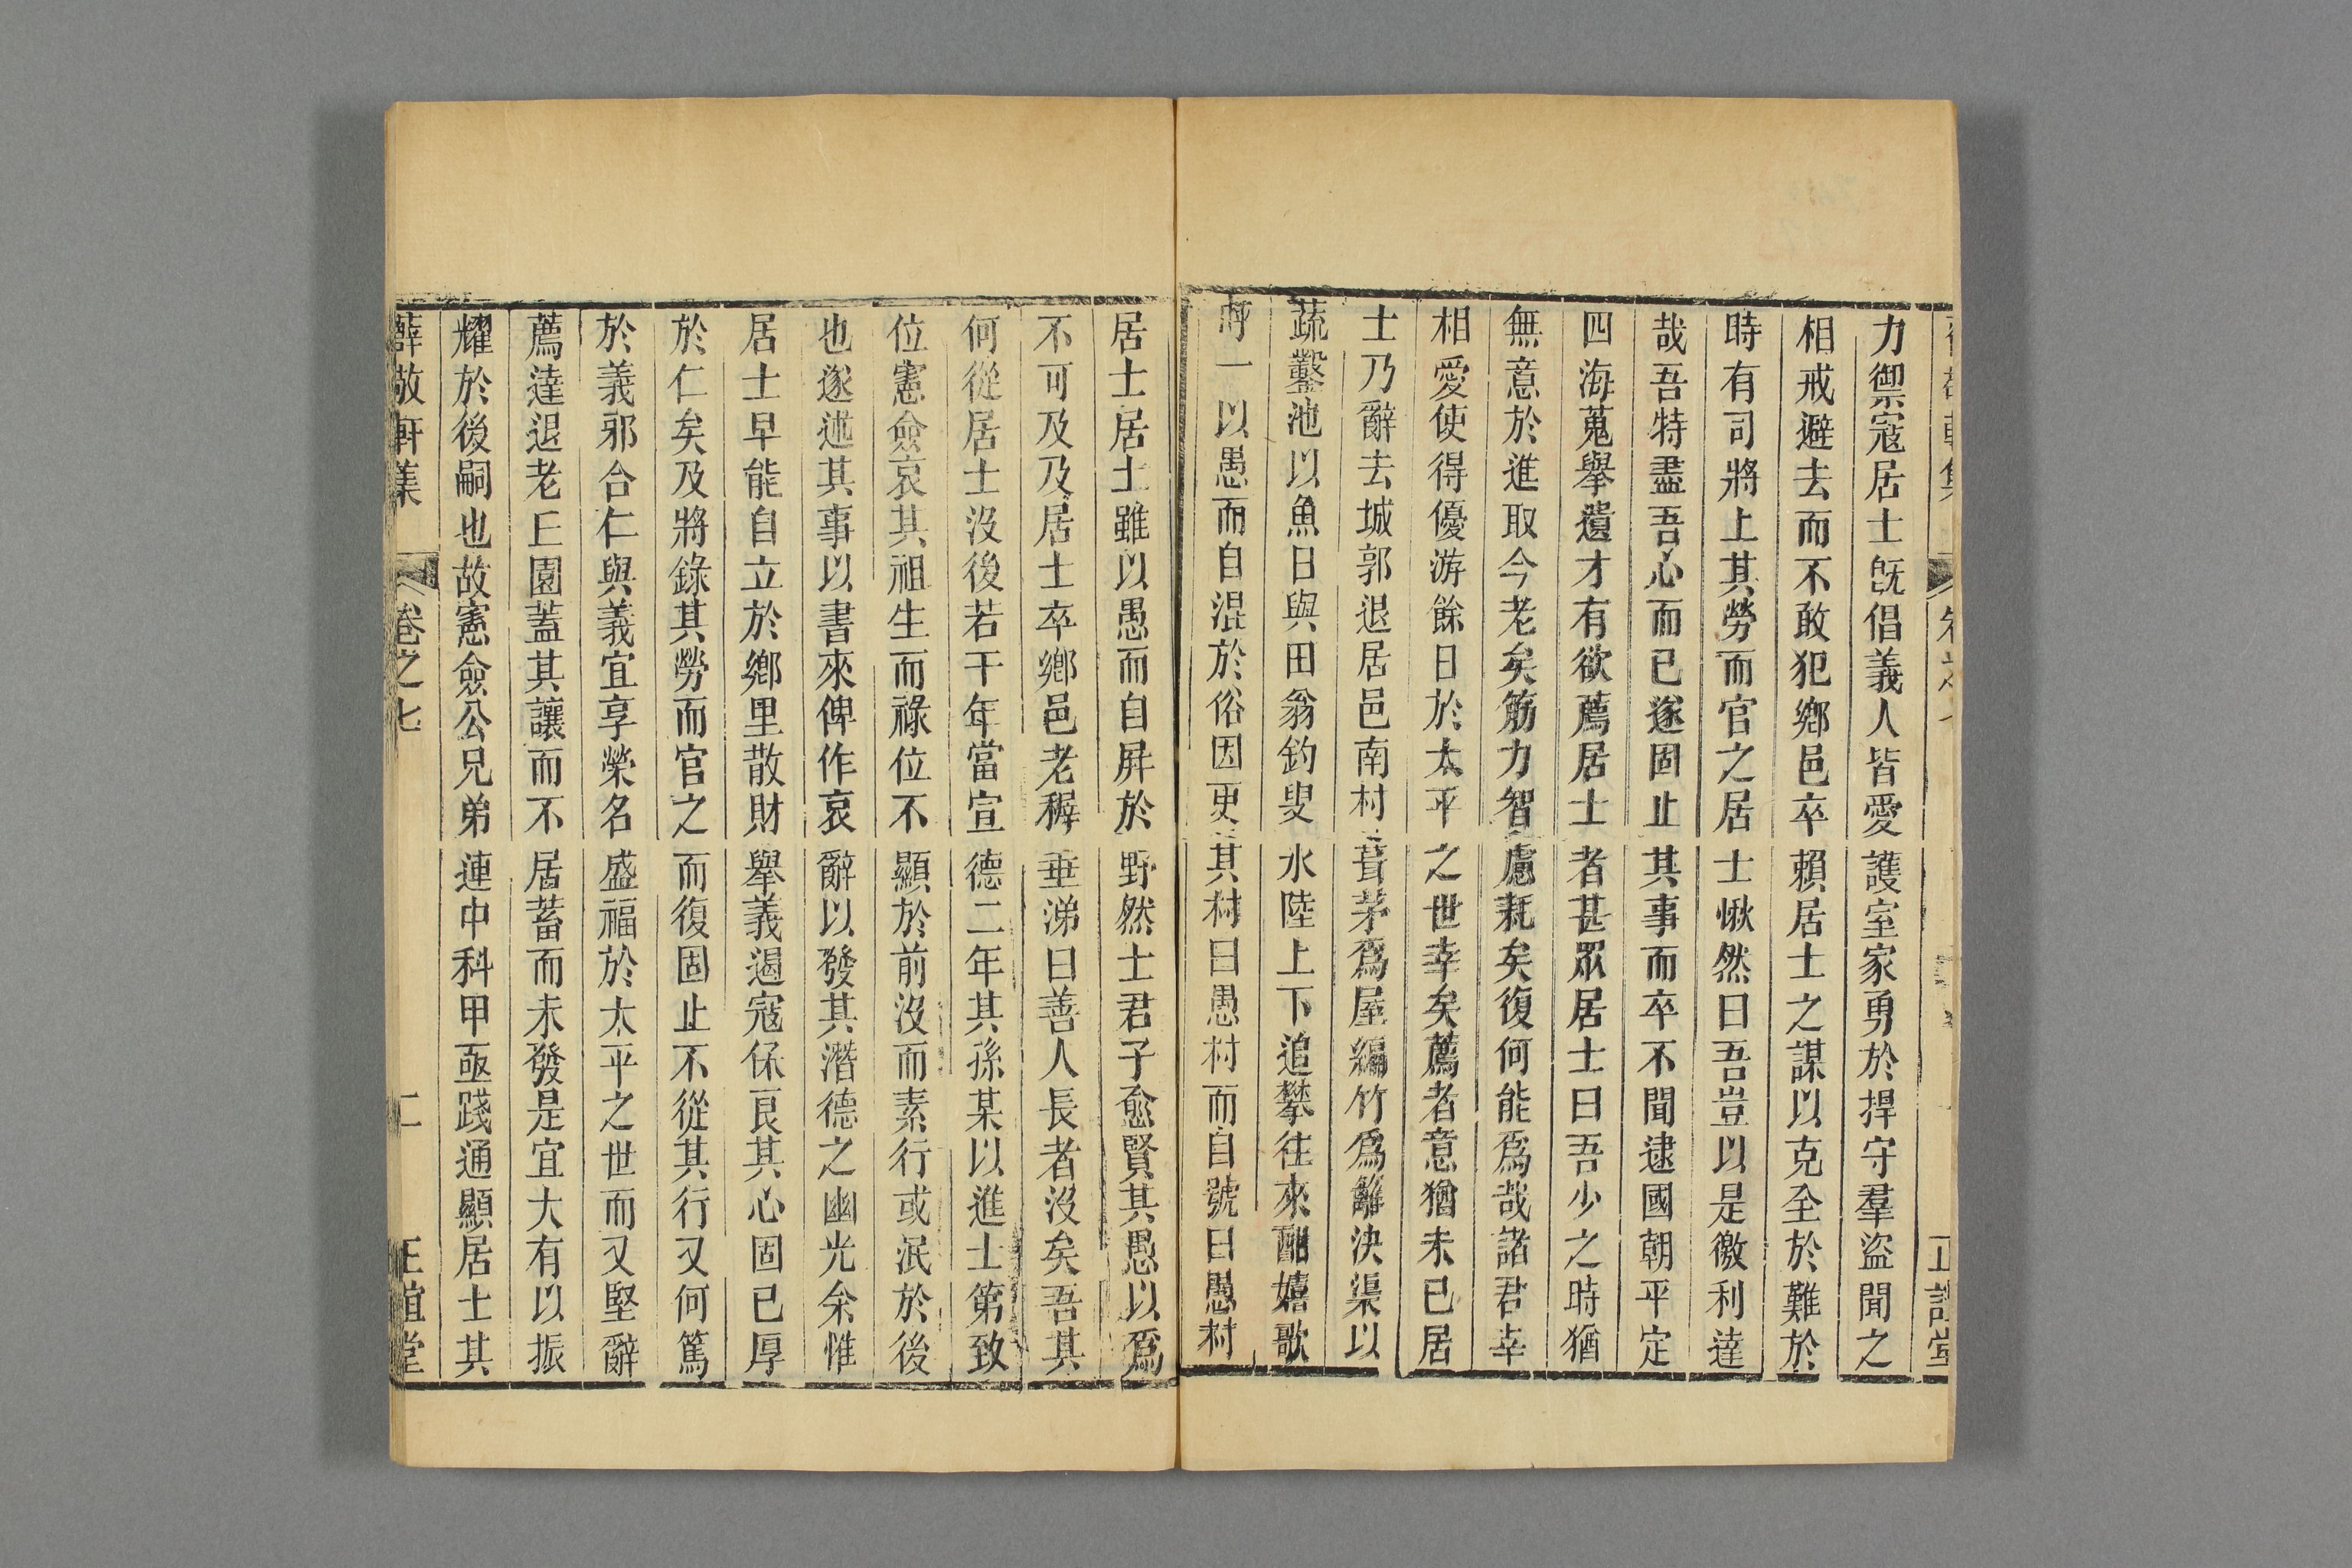 力禦寇居士旣倡義人皆愛護室家勇於捍守羣盜聞之
相戒避去而不敢犯鄉邑卒賴居士之謀以克全於難於
時有司將上其勞而官之居士愀然曰吾豈以是徼利達
哉吾特盡吾心而已遂固止其事而卒不聞逮國朝平定
四海蒐舉遺才有欲薦居士者甚眾居士曰吾少之時猶
無意於進取今老矣筋力智慮耗矣復何能爲哉諸君幸
相愛使得優游餘日於太平之世幸矣薦者意猶未已居
士乃辭去城郭退居邑南村葺茅爲屋編竹爲籬決渠以
蔬鑿池以魚日與田翁釣叟水陸上下追攀往來酣嬉歌
呼一以愚而自混於俗因更其村曰愚村而自號曰愚村
居士居士雖以愚而自屛於野然士君子愈賢其愚以爲
不可及及居士卒鄉邑老穉垂涕曰善人長者沒矣吾其
何從居士沒後若干年當宣德二年其孫某以進士第致
位憲僉哀其祖生而祿位不顯於前沒而素行或泯於後
也遂述其事以書來俾作哀辭以發其潛德之幽光余惟
居士早能自立於鄉里散財舉義遏寇保良其心固已厚
於仁矣及將錄其勞而官之而復固止不從其行又何篤
於義邪合仁與義宜享榮名盛福於太平之世而又堅辭
薦達退老丘園蓋其讓而不居蓄而未發是宜大有以振
耀於後嗣也故憲僉公兄弟連中科甲亟踐通顯居士其
薛敬軒集 卷之七 二 正誼堂